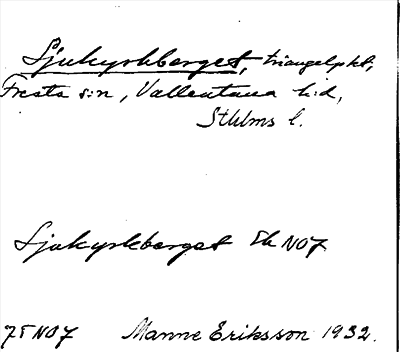 Sjukyrkberget, triangelpkt,
Fresta s:n, Vallentuna h:d,
Sthlms l.
Sjukyrkberget Ek NO7
75 NO7 Manne Eriksson 1932.